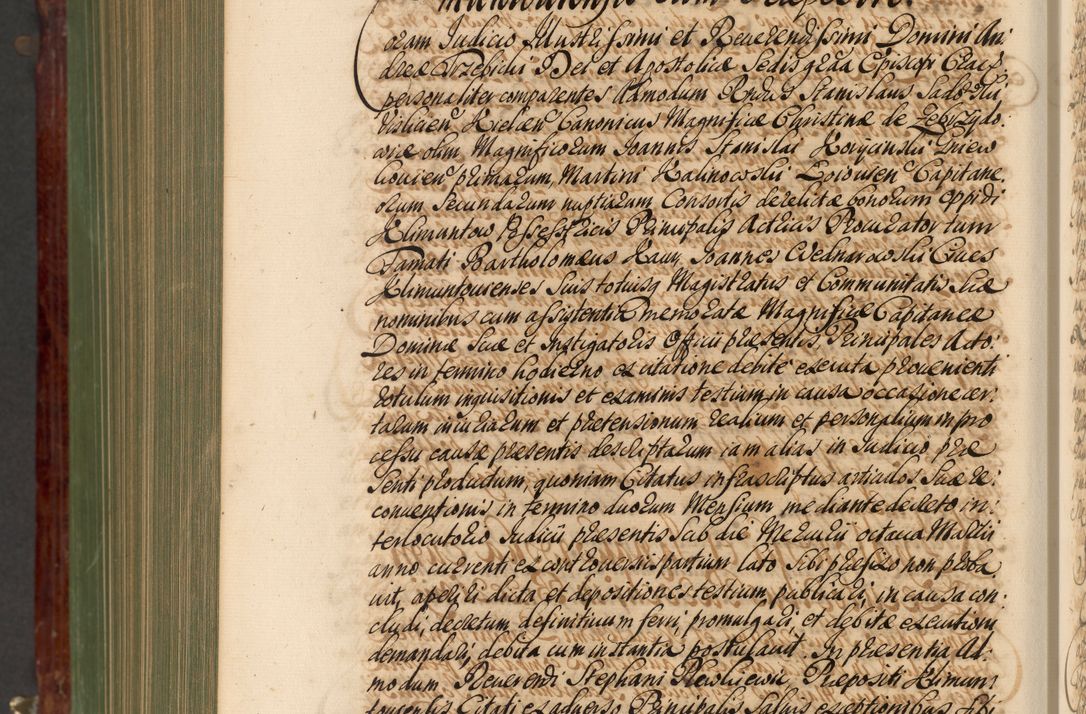 Coram Judicio Illustrissimi et Reverendissimi Domini An:
dreæ Trzebicki Dei et Apostolicæ Sedis gratia Episcopi Crac:
personaliter comparentes Admodum Rndus Stanislaus
Vislicien Kielcen Canonicus Magnificæ Christinæ de Zebrzydo:
wice olim Magnificorum Joannis Stanislai Korycinskii
primarum, Martini Kalinowskii Capitane,
orum Secundarum nuptiarum Consortis derelictæ bonorum Oppidi
Klimuntow Possessricis Principalis Actricis Procurator tum
Famati Bartholomæus Joannes Cives
Klimuntovienses suis totiusq Magistratus et Communitatis suæ
nominibus cum assistentia memoratæ Magnificæ Capitaneæ
Dominæ suæ et Instigatoris Officii præsentis, Principales Acto:
res in termino hodierno ex citatione debite executa provenienti
rotulum inquisitionis et examinis testium in causa occasione cer:
tarum iniuriarum et prætensionum realium et personalium in pro
cessu causæ præsentis descriptarum iam alias in Judicio præ
senti productum, quoniam Citatus infrascriptus articulos suæ re:
conventionis in termino duorum Mensium mediante decreto in:
terlocutorio Judicii præsentis sub die Mercurii octava Martii
anno currenti ex controversiis partium lato sibi præfixo non proba,
vit, aperiri dicta et depositiones testium publicari, in causa con:
cludi, decretum definitivum ferri, promulgari, et debitæ executioni
demandari, debita cum instantia postulavit. In præsentia Ad:
modum Reverendi Stephani Præpositi Klimun:
toviensis Citati ex adverso Principalis salvis exceptionibus sibi